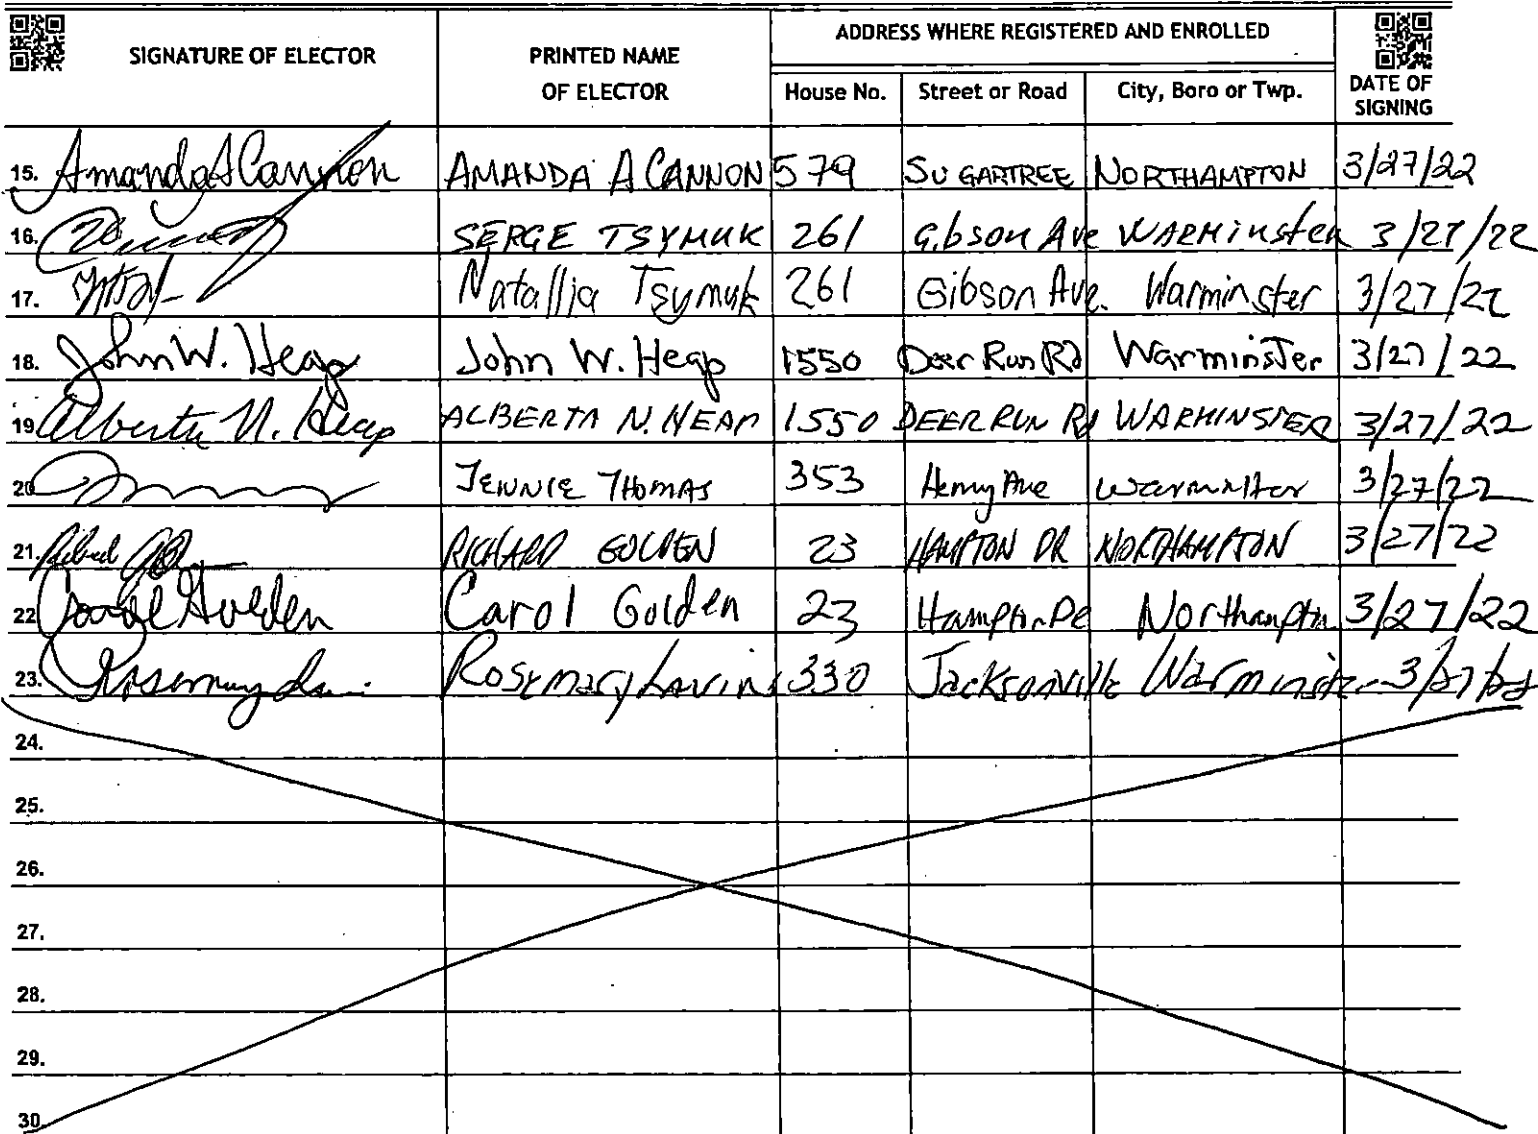 SIGNATURE OF ELECTOR PRINTED NAME OF ELECTOR ADDRESS WHERE REGISTERED AND ENROLLED DATE OF SIGNING
House No. Street or Road City, Boro or Twp.
15. Amanda A Cannon AMANDA A CANNON 579 SUGARTREE NORTHAMPTON 3/27/22
16. SERGE TSYMUK 261 Gibson Ave WARMINSTER 3/27/22
17. Natallia Tsymuk 261 Gibson Ave. Warminster 3/27/22
18. John W. Heap John W. Heap 1550 Deer Run Rd Warminster 3/27/22
19. Alberta N. Heap ALBERTA N. HEAP 1550 DEER RUN Rd WARMINSTER 3/27/22
20. JENNIE THOMAS 353 Henry Ave Warminster 3/27/22
21. RICHARD GOLDEN 23 HAMPTON DR NORTHAMPTON 3/27/22
22. Carol Golden Carol Golden 23 Hampton Dr Northampton 3/27/22
23. Rosemary Rosemary Lavin 330 Jacksonville Warminster 3/27/22
24.
25.
26.
27.
28.
29.
30.